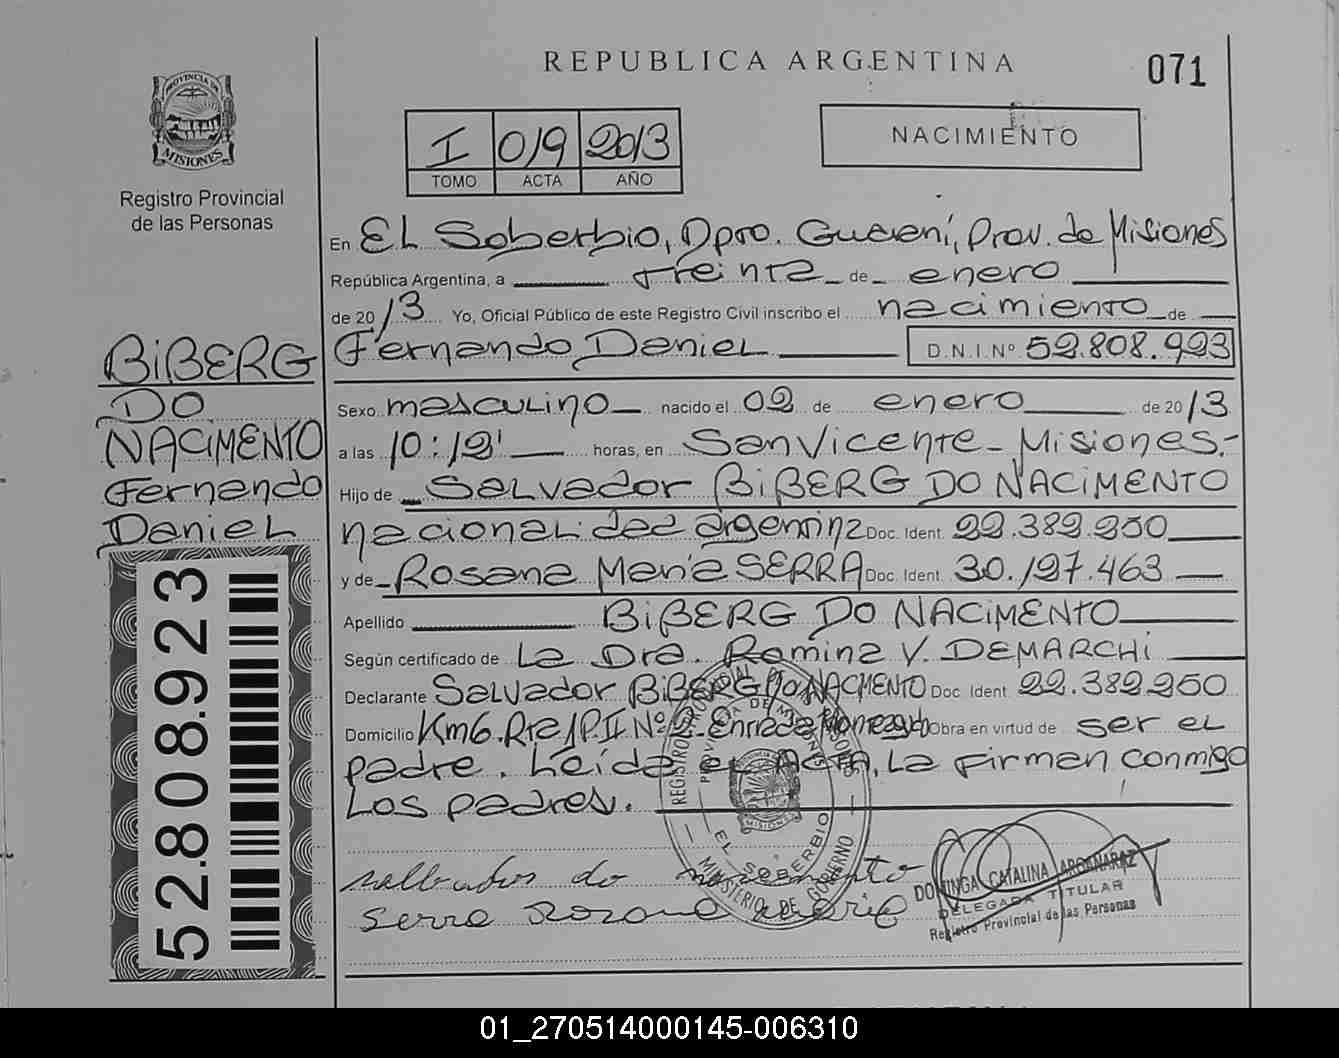 REPUBLICA ARGENTINA
071
PROVINCIA DE
MISIONES
Registro Provincial
de las Personas
I 019 2013
TOMO ACTA AÑO
NACIMIENTO
En EL Soberbio, Dpto. Guaraní, Prov. de Misiones
República Argentina, a treinta de enero
de 2013 Yo, Oficial Público de este Registro Civil inscribo el nacimiento de
Fernando Daniel D.N.I.Nº 52.808.923
Sexo masculino nacido el 02 de enero de 2013
a las 10:12' horas, en San Vicente - Misiones.-
Hijo de Salvador BiBERG DO NACiMENTO
nacionalidad argentina Doc. Ident. 22.382.250
y de Rosana María SERRA Doc. Ident. 30.197.463
Apellido BiBERG DO NACiMENTO
Según certificado de La Dra. Romina V. DEMARCHi
Declarante Salvador BiBERG DO NACIMENTO Doc Ident. 22.382.250
Domicilio Km6. Rta P. II Nº 2 Obra en virtud de ser el
padre. Leída el Acta, La firman conmigo
Los padres.
BiBERG
DO
NACiMENTO
Fernando
Daniel
52.808.923
REGISTRO PROVINCIAL DE LAS PERSONAS
PROVINCIA DE MISIONES
MISIONES
EL SOBERBIO
MINISTERIO DE GOBIERNO
do
Serra Rozana Maria
DOMINGA CATALINA ARGAÑARAZ
DELEGADA TITULAR
Registro Provincial de las Personas
01_270514000145-006310